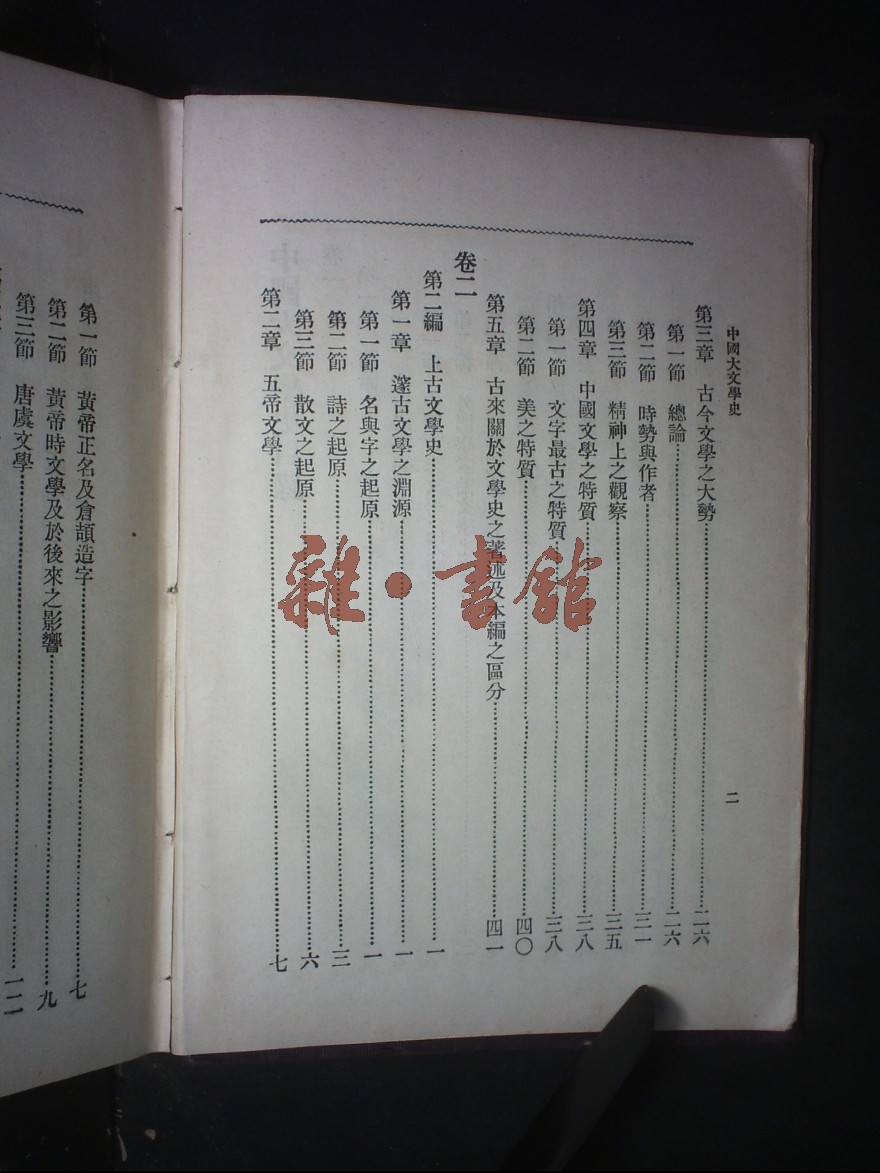 中國大文學史
二
第三章 古今文學之大勢……二六
第一節 總論……二六
第二節 時勢與作者……三一
第三節 精神上之觀察……三五
第四章 中國文學之特質……三八
第一節 文字最古之特質……三八
第二節 美之特質……四〇
第五章 古來關於文學史之著述及本編之區分……四一
卷二
第二編 上古文學史……一
第一章 邃古文學之淵源……一
第一節 名與字之起原……一
第二節 詩之起原……三
第三節 散文之起原……六
第二章 五帝文學……七
第一節 黃帝正名及倉頡造字……七
第二節 黃帝時文學及於後來之影響……九
第三節 唐虞文學……一二
雜·書館